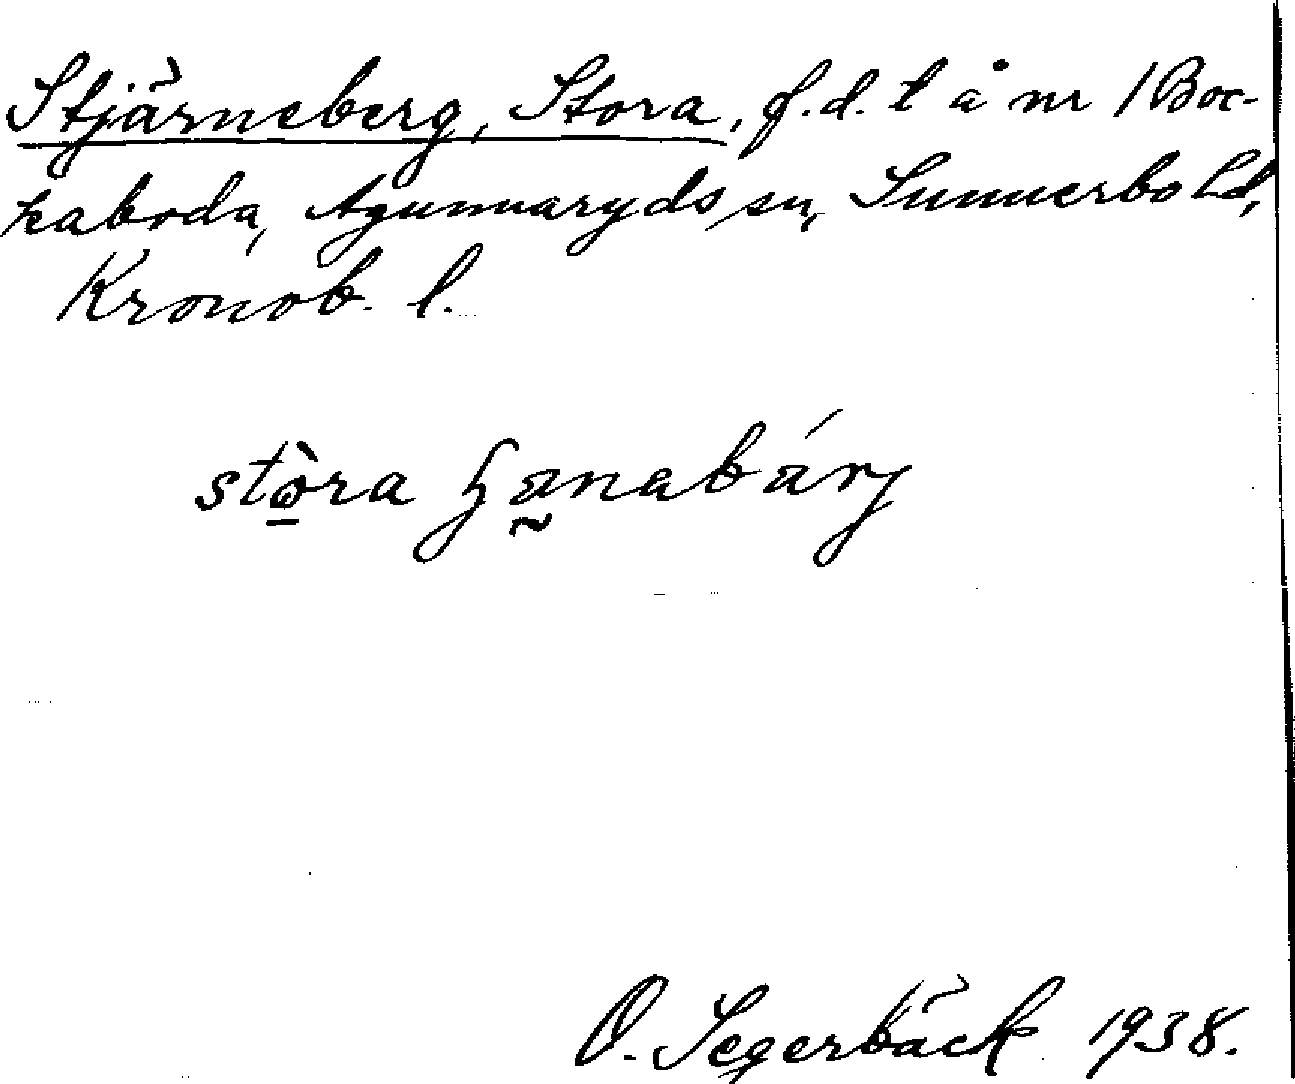 Stjärneberg, Stora, f.d. t å nr 1 Boc-
kaboda, Agunnaryds sn, Sunnerbo hd,
Kronob. l.
stò̱ra ɧa̰nabárj
O. Segerbäck 1938.